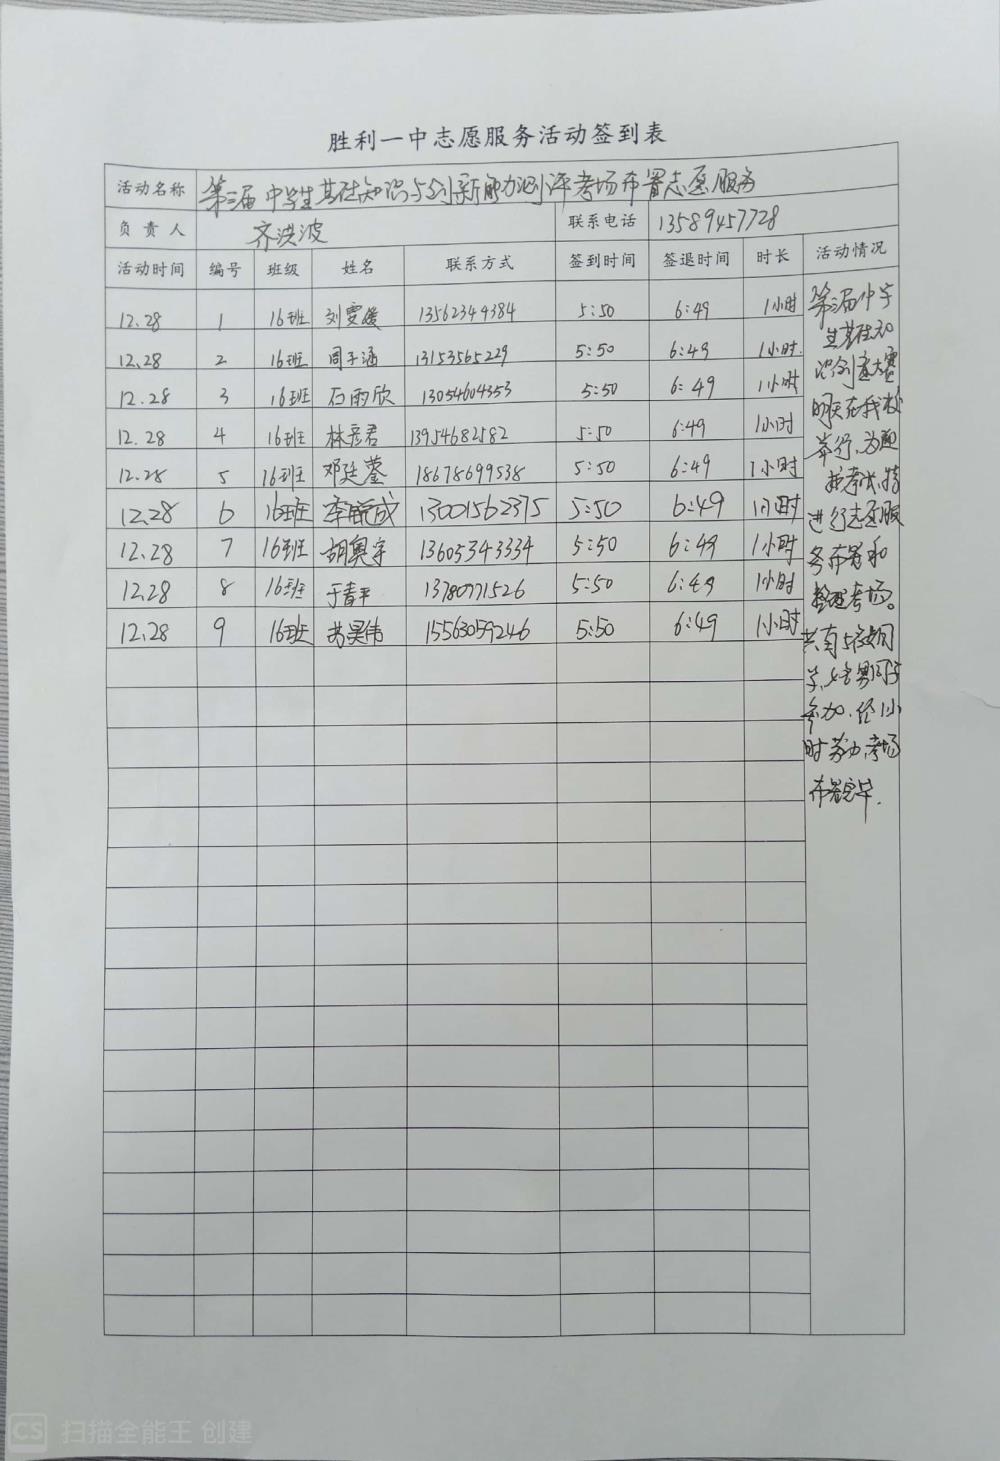 胜利一中志愿服务活动签到表
活动名称 第三届中学生基础知识与创新能力测评考场布置志愿服务
负责人 齐洪波 联系电话 13589457728
活动时间 编号 班级 姓名 联系方式 签到时间 签退时间 时长 活动情况
12.28 1 16班 刘雯媛 13562349384 5:50 6:49 1小时
12.28 2 16班 周子涵 13153565229 5:50 6:49 1小时.
12.28 3 16班 石雨欣 13054604353 5:50 6:49 1小时
12.28 4 16班 林彦君 13954682582 5:50 6:49 1小时
12.28 5 16班 邓廷蓥 18678699538 5:50 6:49 1小时
12.28 6 16班 李 成 13001562375 5:50 6:49 1小时
12.28 7 16班 胡奥宇 13605343334 5:50 6:49 1小时
12.28 8 16班 于春平 13780771526 5:50 6:49 1小时
12.28 9 16班 苏昊伟 15563059246 5:50 6:49 1小时
第三届中学
生基础知
识创意大赛
明天在我校
举行,为迎
接考试,特
进行志愿服
务布置和
整理考场。
共有5位女同
学,4名男同学
参加.经1小
时努力,考场
布置完毕.
CS 扫描全能王 创建